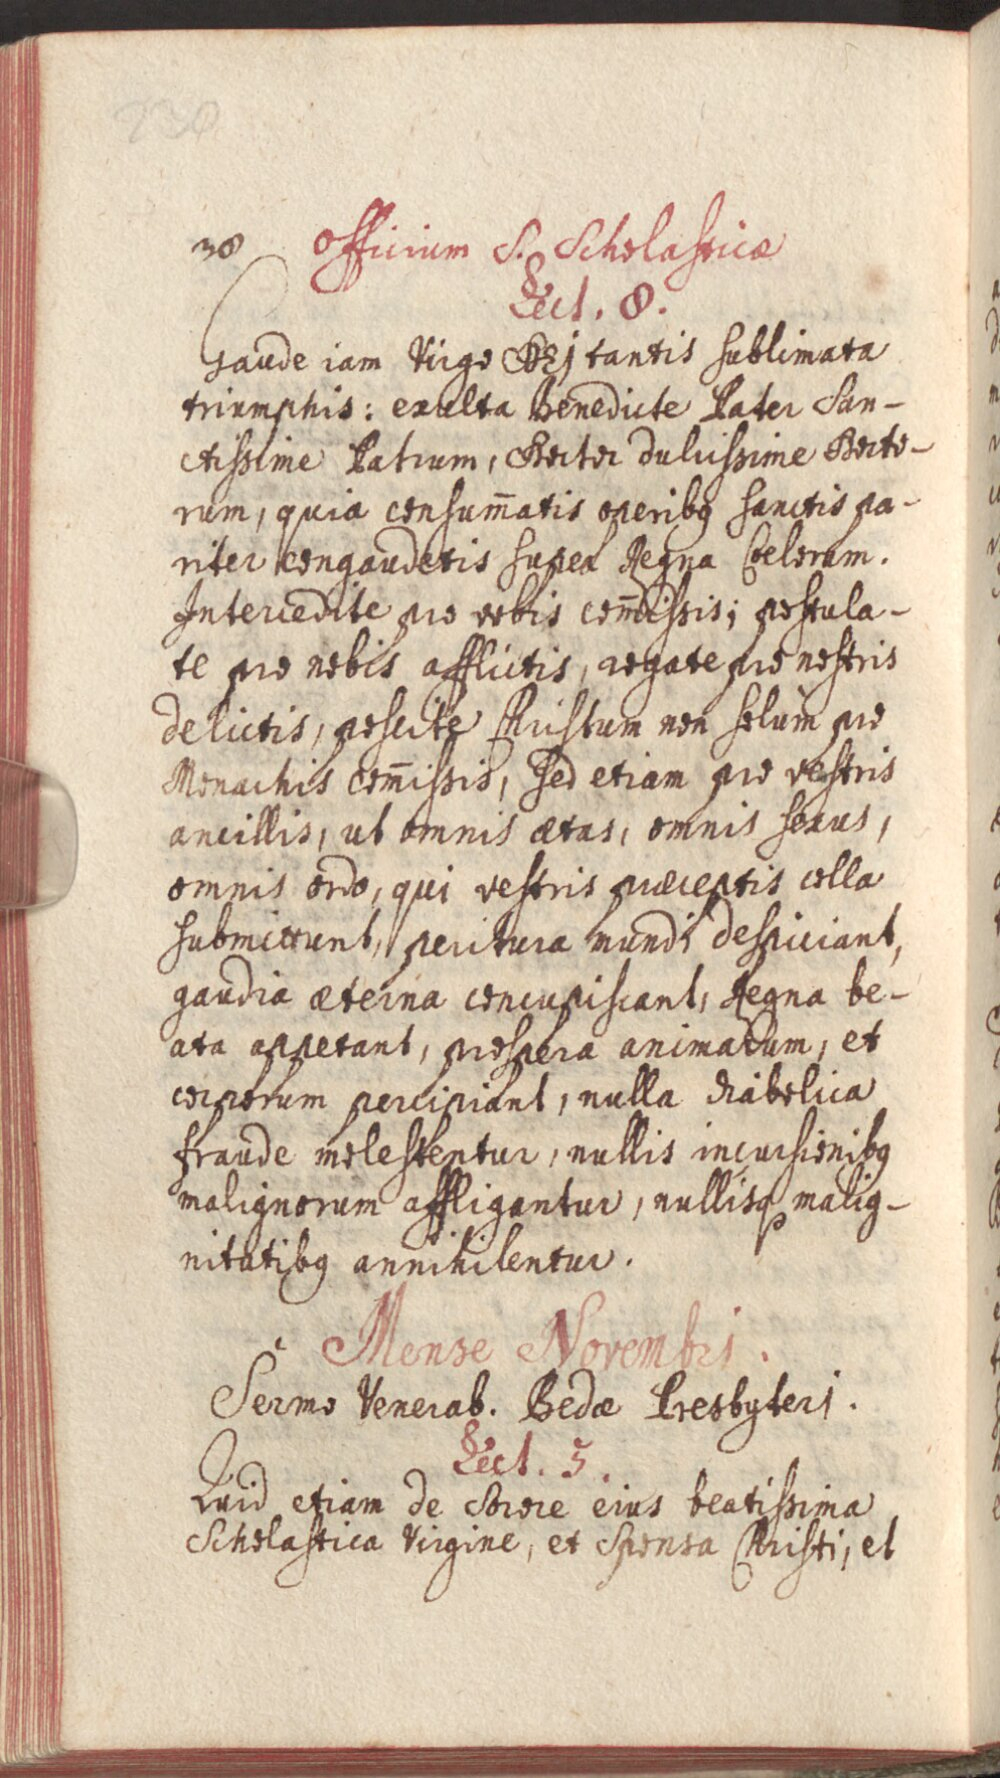 230
38 Officium S. Scholasticæ
Lect. 8.
Gaude iam Virgo DEj tantis sublimata
triumphis: exulta Benedicte Pater San-
ctissime Patrum, Doctor dulcissime Docto-
rum, quia consum̅atis operibq sanctis pa-
riter congaudetis super Regna Coelorum.
Intercedite pro vobis com̅issis; postula-
te pro nobis afflictis, rogate pro nostris
delictis, poscite Christum non solùm pro
Monachis com̅issis, sed etiam pro vestris
ancillis, ut omnis ætas, omnis sexus,
omnis ordo, qui vestris præceptis colla
submittunt, peritura mundi despiciant,
gaudia æterna concupiscant, Regna be-
ata appetant, prospera animarum, et
corporum percipiant, nulla diabolica
fraude molestentur, nullis incursionibq
malignorum affligantur, nullisq malig-
nitatibq annihilentur.
Mense Novembri.
Sermo Venerab. Bedæ Presbyteri.
Lect. 5.
Quid etiam de Sorore eius beatissima
Scholastica Virgine, et Sponsa Christi, el